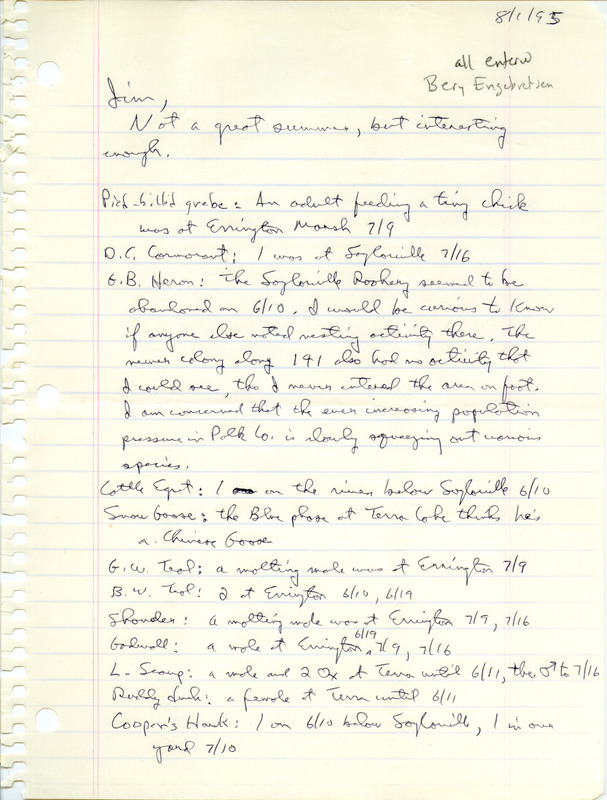 8/1/95
all entered
Bery Engebretsen
Jim,
Not a great summer, but interesting
enough.
Pied-billed grebe: An adult feeding a tiny chick
was at Errington Marsh 7/9
D.C. Cormorant: 1 was at Saylorville 7/16
G.B. Heron: The Saylorville Rookery seemed to be
abandoned on 6/10. I would be curious to know
if anyone else noted nesting activity there. The
newer colony along 141 also had no activity that
I could see, tho I never entered the area on foot.
I am concerned that the ever increasing population
pressure in Polk Co. is slowly squeezing out various
species.
Cattle Egret: 1 on the river below Saylorville 6/10
Snow Goose: the Blue phase at Terra Lake thinks he's
a Chinese Goose
G.W. Teal: a molting male was at Errington 7/9
B.W. Teal: 2 at Errington 6/10, 6/19
Shoveler: a molting male was at Errington 7/9, 7/16
Gadwall: a male at Errington 6/19, 7/9, 7/16
L. Scaup: a male and 2 ♀ at Terra until 6/11, the ♂ to 7/16
Ruddy Duck: a female at Terra until 6/11
Cooper's Hawk: 1 on 6/10 below Saylorville, 1 in our
yard 7/10